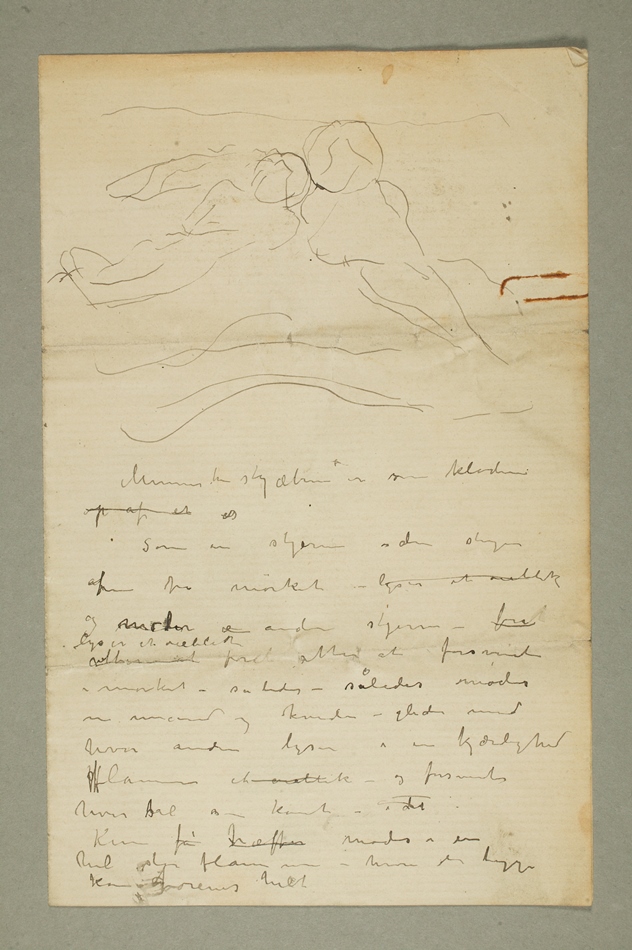 Menneskeskjæbner er som kloderne
op af et
Som en stjerne der stiger
op fra mørket – lyser et øieblik
og møder en anden stjerne –
lyser et øieblik
for atter at forsvinde
i mørket – således – således mødes
en mand og kvinde – glider mod
hverandre lyser i en kjærlighed
flamme et øieblik – og forsvinder
hver sin kant –
Kun få mødes i en
hel stor flamme – hvor de begge
kan forenes helt